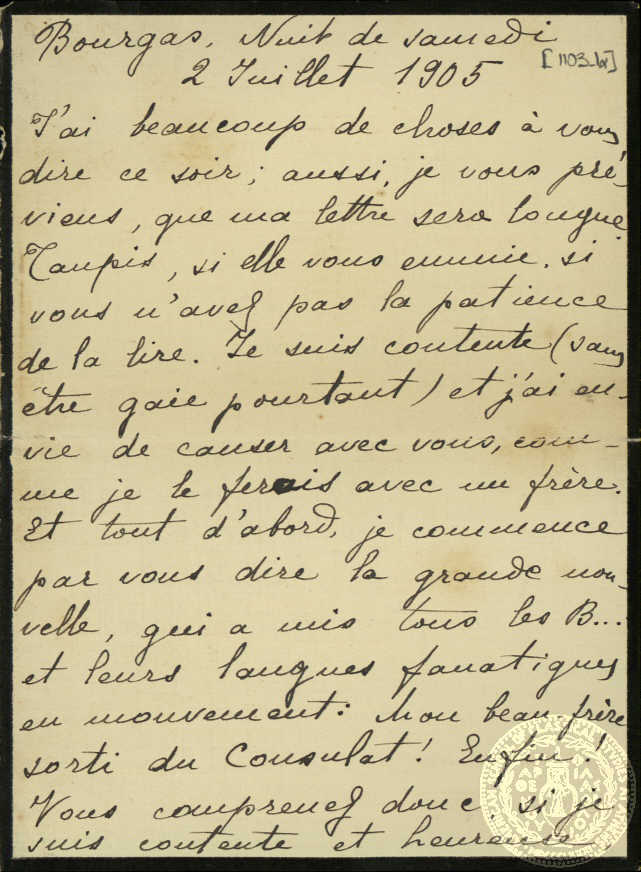 Bourgas, Nuit de samedi
[1103.b]
2 Juillet 1905
J'ai beaucoup de choses à vous
dire ce soir; aussi, je vous pré-
viens, que ma lettre sera longue.
Tanpis, si elle vous ennuie, si
vous n'avez pas la patience
de la lire. Je suis contente (sans
être gaie pourtant) et j'ai en-
vie de causer avec vous, com-
me je le ferais avec un frère.
Et tout d'abord, je commence
par vous dire la grande nou-
velle, qui a mis tous les B...
et leurs langues fanatiques
en mouvement: Mon beau frère
sorti du Consulat! Enfin!
Vous comprenez donc, si je
suis contente et heureuse.